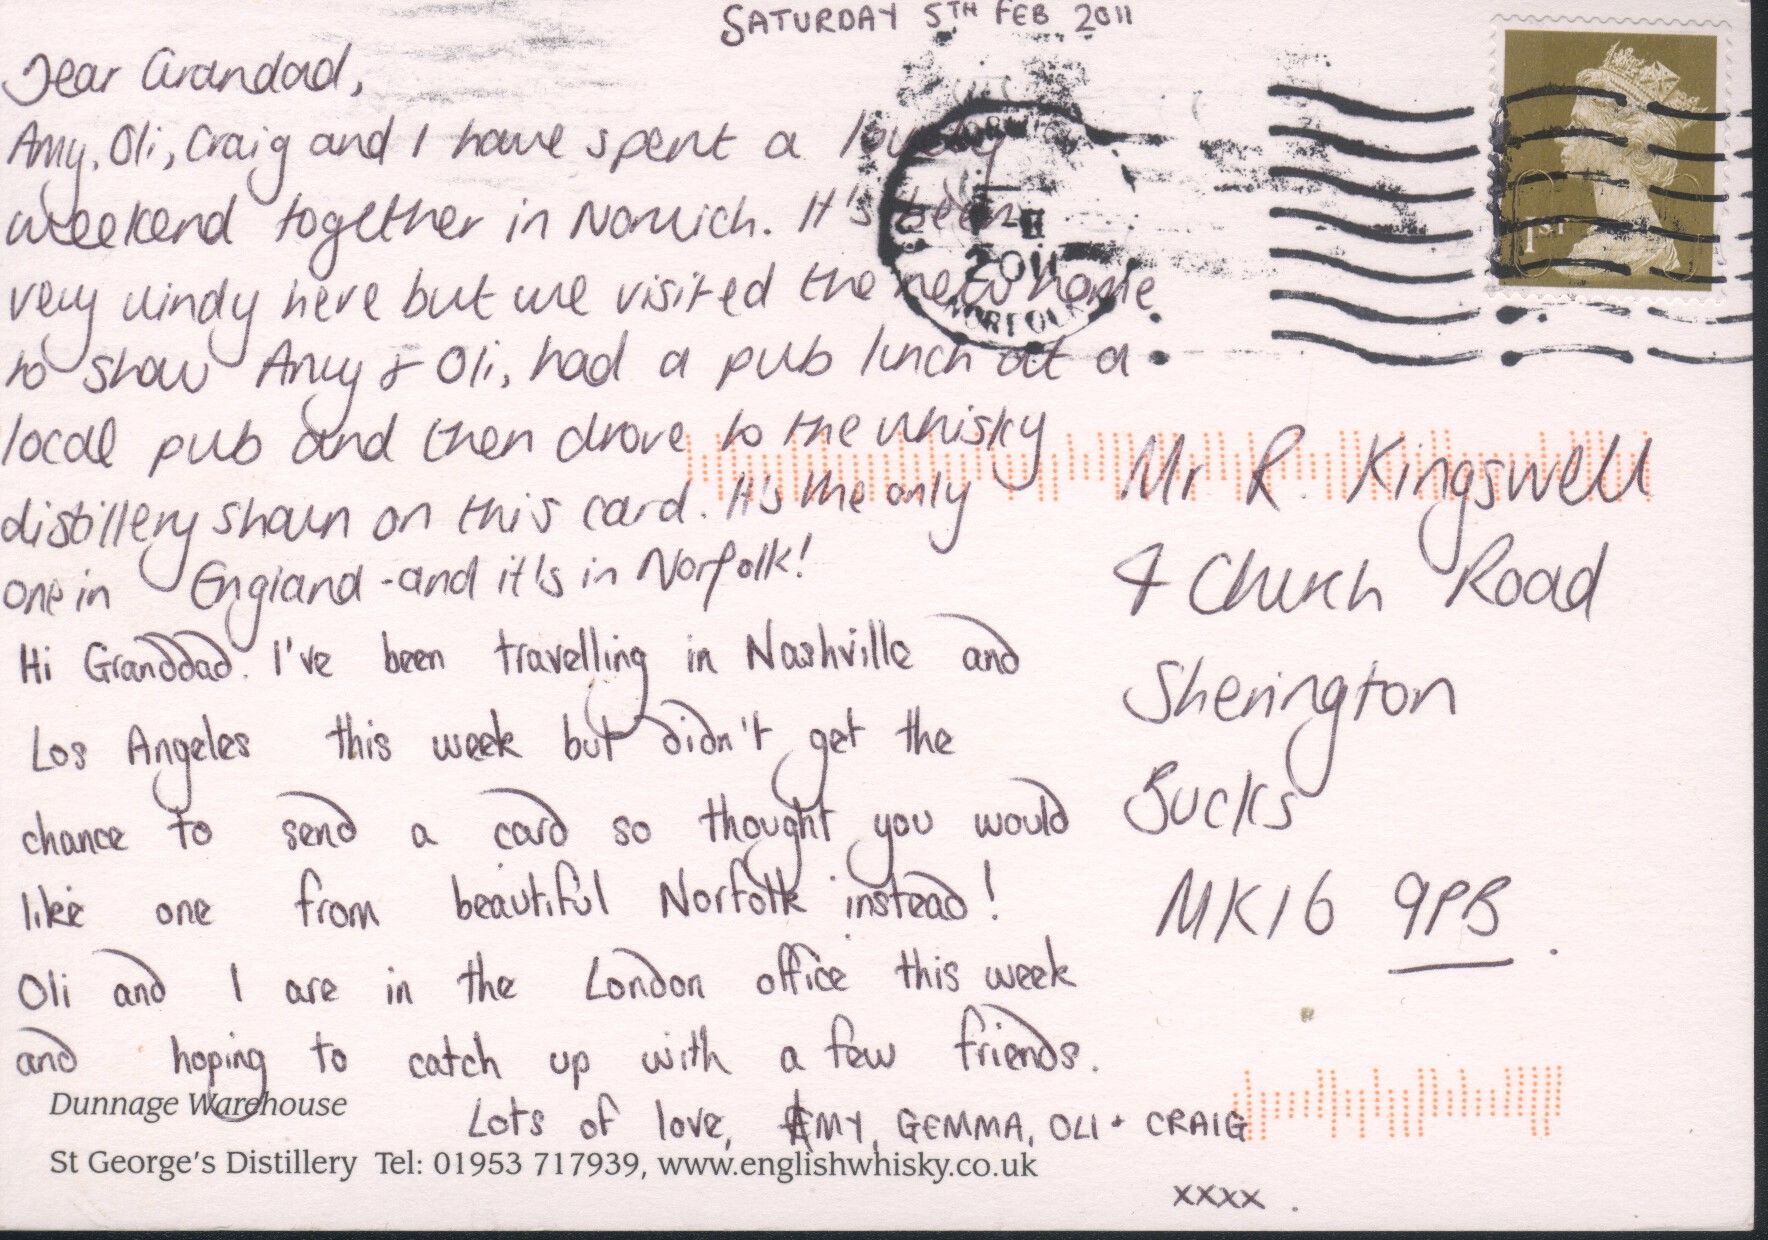 SATURDAY 5TH FEB 2011
Dear Grandad,
Amy, Oli, Craig and I have spent a lovely
weekend together in Norwich. It's been
very windy here but we visited the new home
to show Amy & Oli, had a pub lunch at a
local pub and then drove to the whisky
distillery shown on this card. It's the only
one in England - and it's in Norfolk!
Hi Granddad. I've been travelling in Nashville and
Los Angeles this week but didn't get the
chance to send a card so thought you would
like one from beautiful Norfolk instead!
Oli and I are in the London office this week
and hoping to catch up with a few friends.
Lots of love, AMY, GEMMA, OLI + CRAIG
xxxx.
Dunnage Warehouse
St George's Distillery Tel: 01953 717939, www.englishwhisky.co.uk
Mr R. Kingswell
4 Church Road
Sherington
Bucks
MK16 9PB.
1ST
NORWICH
2011
NORFOLK